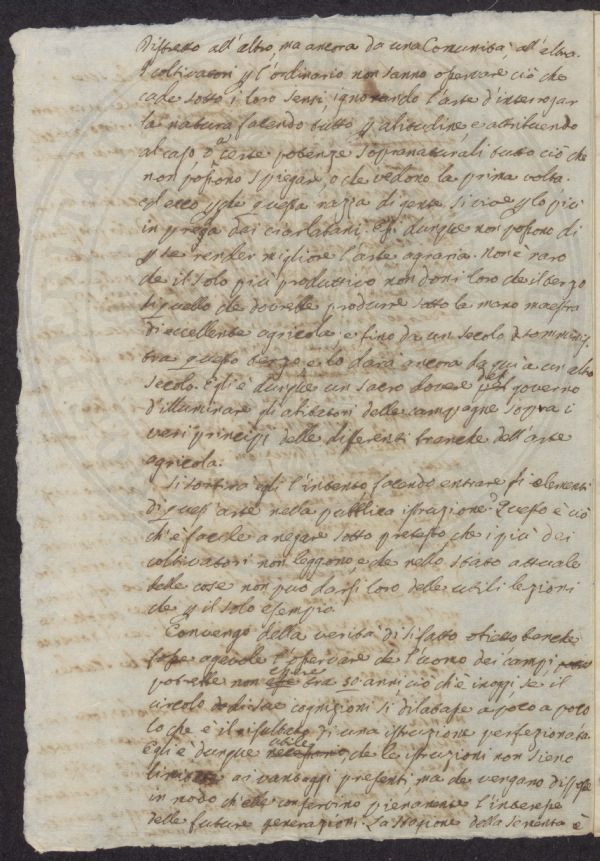 Distretto all'altro, ma ancora da una Comunità all'altra.
I coltivatori p l'ordinario non sanno osservare ciò che
cade sotto i loro sensi, ignorando l'arte d'interrogar
la natura facendo tutto p abitudine e attribuendo
al caso o a certe potenze sopranaturali tutto ciò che
non possono spiegare, o che vedono la prima volta.
Ed ecco pche questa razza di gente si vive p lo più
in preda dai ciarlatani. Essi dunque non possono di
p se render migliore l'arte agraria. Non è raro
che il solo più produttivo non doni loro che il terzo
di quello che dovrebbe produrre sotto la mano maestra
di eccellente agricola; e fino da un secolo
questo terzo e lo darà ancora da qui a un altro
secolo. Egli è dunque un sacro dovere del governo
d'illuminare gli abitatori delle campagne sopra i
veri principj delle differenti branche dell'arte
agricola.
Si sortirà egli l'intento facendo entrare gli elementi
di quest'arte nella pubblica istruzione? Questo è ciò
ch'è facile a negare sotto pretesto, che i più dei
coltivatori non leggono, e che nello stato attuale
delle cose non può darsi loro delle utili lezioni
che p il solo esempio.
Convengo della verità di sifatto obietto benche
fosse agevole l'osservare che l'uomo dei campi
potrebbe non essere tra 30 anni, ciò ch'è in oggi se il
circolo di sue cognizioni si dilatasse a poco a poco
lo che è il risultato di una istruzione perfezionata.
Egli è dunque utile, che le istruzioni non sieno
limitate ai vantaggi presenti, ma che vengano disposte
in modo ch'elle conservino pienamente l'interesse
delle future generazioni. La stagione della sementa è